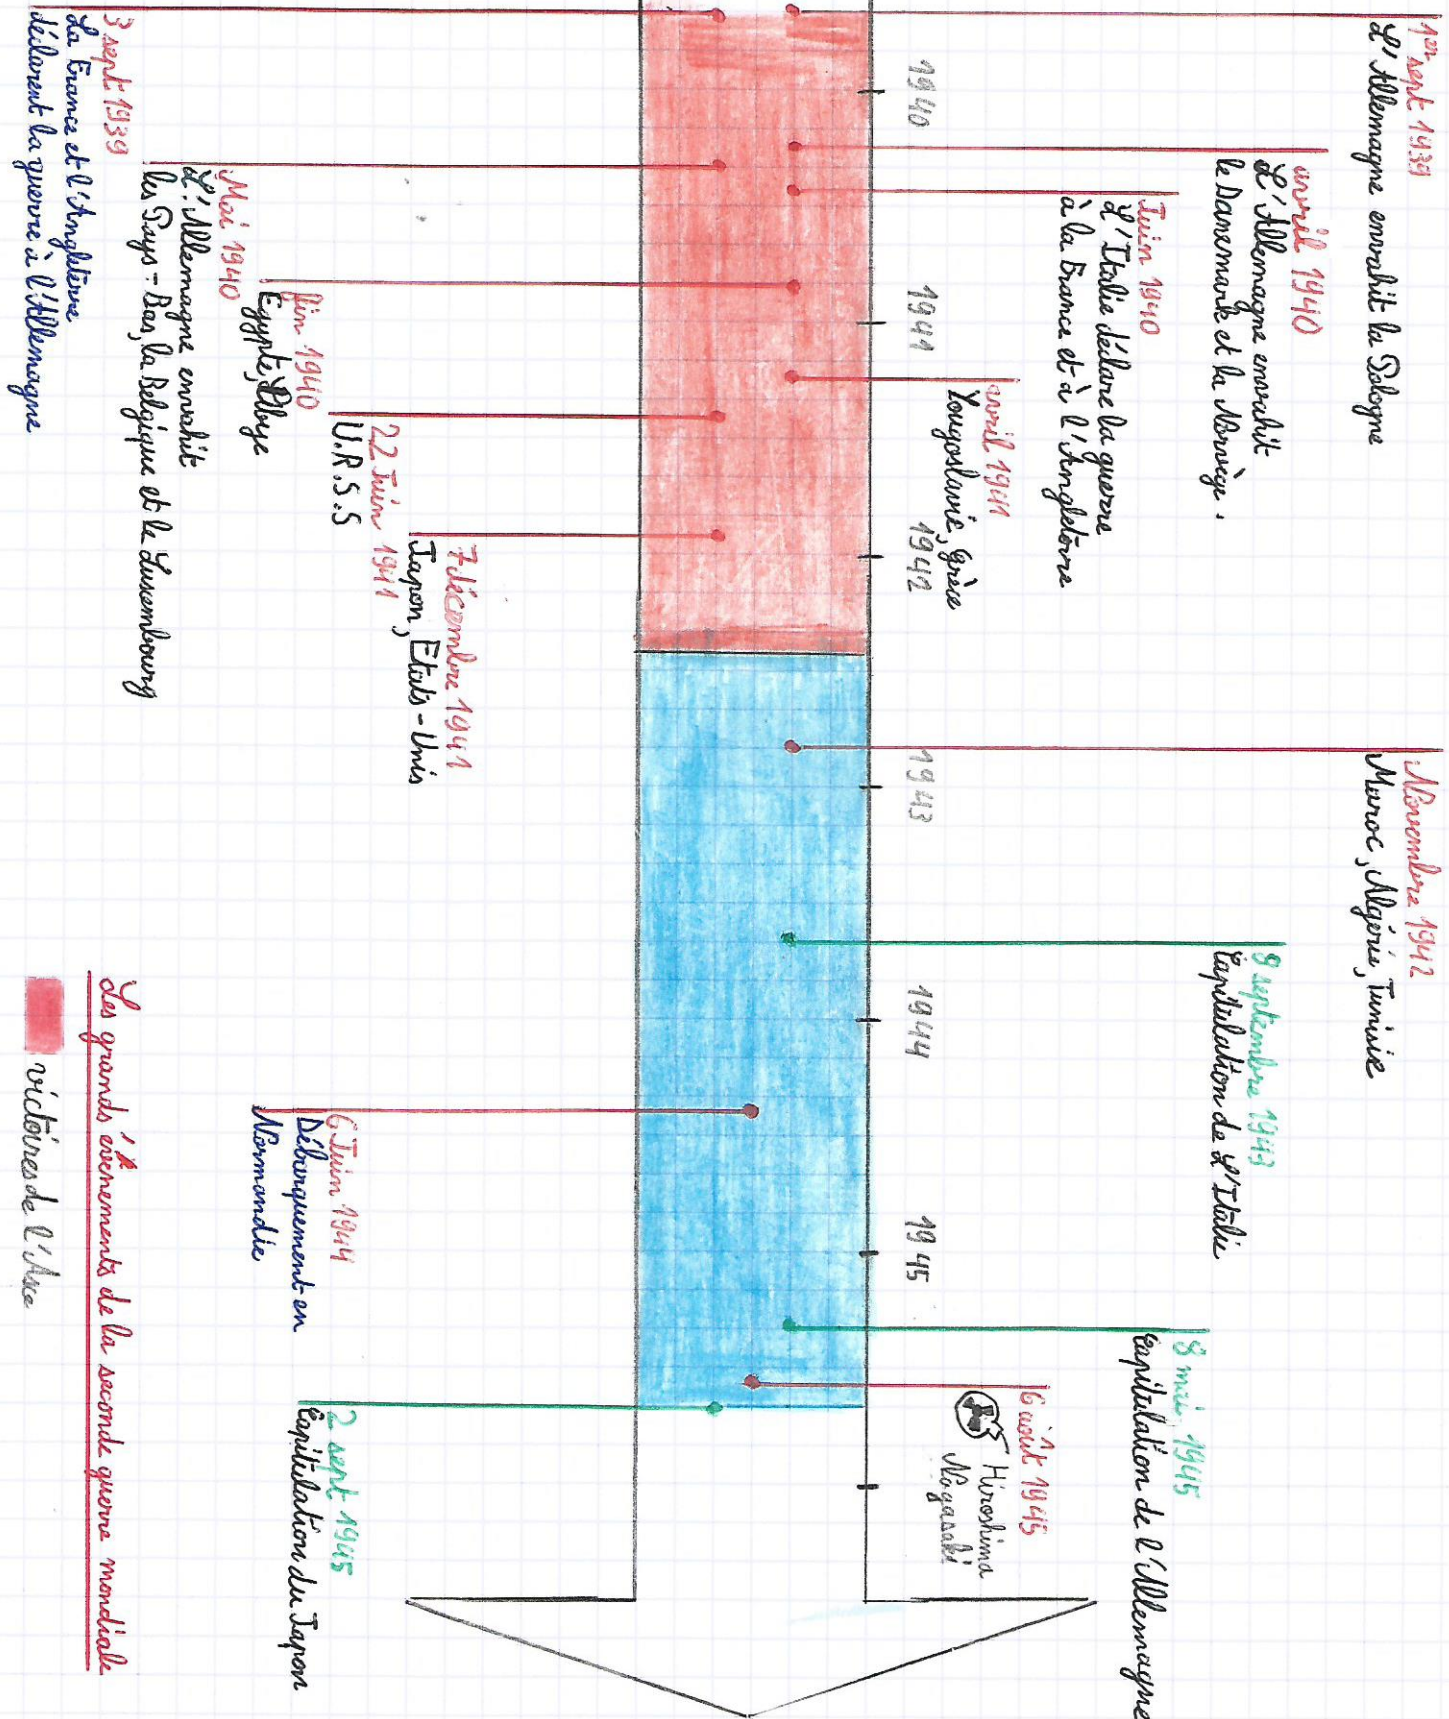 1er sept 1939
L'Allemagne envahit la Pologne
avril 1940
L'Allemagne envahit
le Danemark et la Norvège.
Juin 1940
L'Italie déclare la guerre
à la France et à l'Angleterre
avril 1941
Yougoslavie, Grèce
Novembre 1942
Maroc, Algérie, Tunisie
9 septembre 1943
Capitulation de L'Italie
8 mai 1945
Capitulation de l'Allemagne
6 août 1945
Hiroshima
Nagasaki
1940
1941
1942
1943
1944
1945
3 sept 1939
La France et l'Angleterre
déclarent la guerre à l'Allemagne
Mai 1940
L'Allemagne envahit
les Pays-Bas, la Belgique et le Luxembourg
fin 1940
Egypte, Libye
22 Juin 1941
U.R.S.S
7 décembre 1941
Japon, Etats-Unis
6 Juin 1944
Débarquement en
Normandie
2 sept 1945
Capitulation du Japon
Les grands évènements de la seconde guerre mondiale
victoires de l'Axe